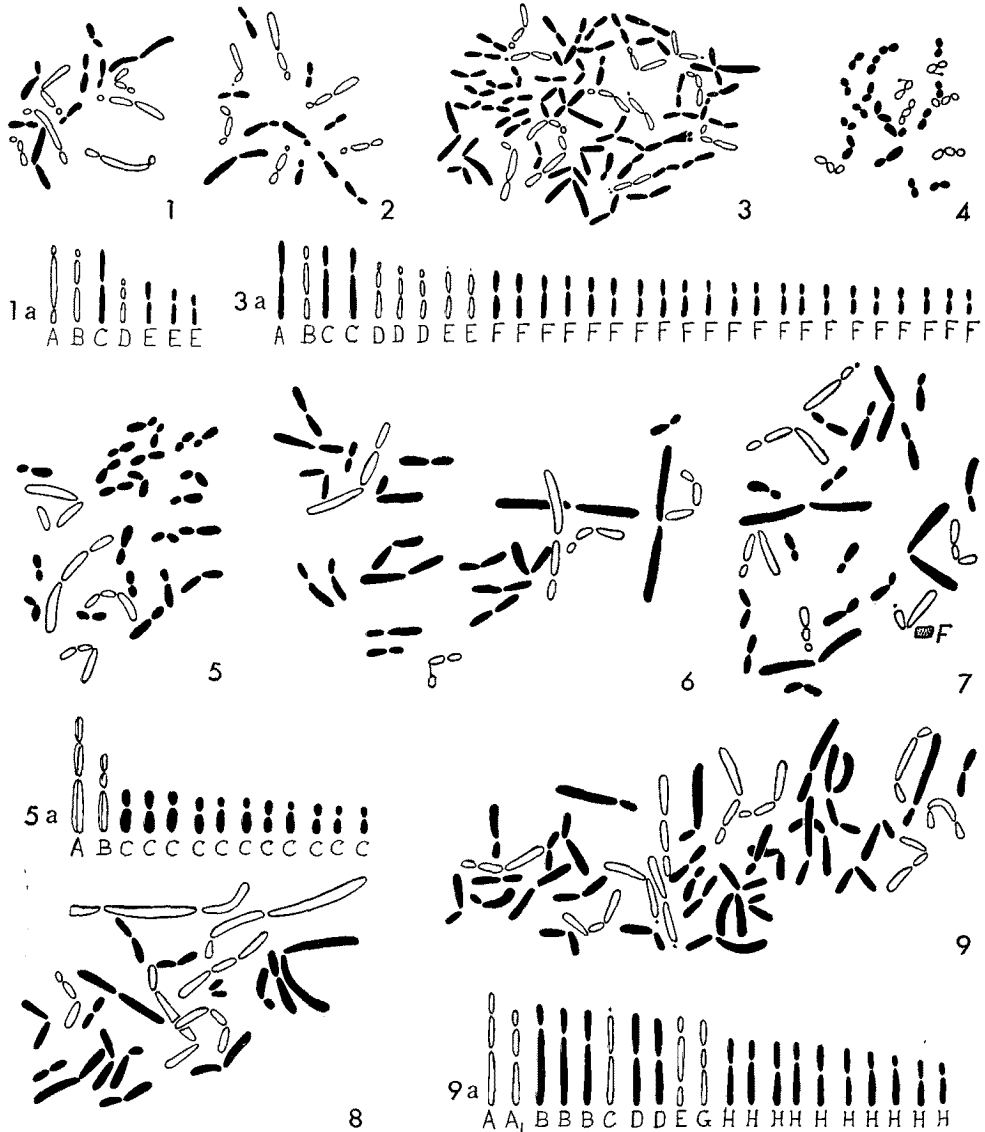 1 2 3 4
1a A B C D E E E
3a A B C C D D D E E F F F F F F F F F F F F F F F F F F F F F
5 6 7 F
5a A B C C C C C C C C C C C
8 9
9a A A₁ B B B C D D E G H H H H H H H H H H